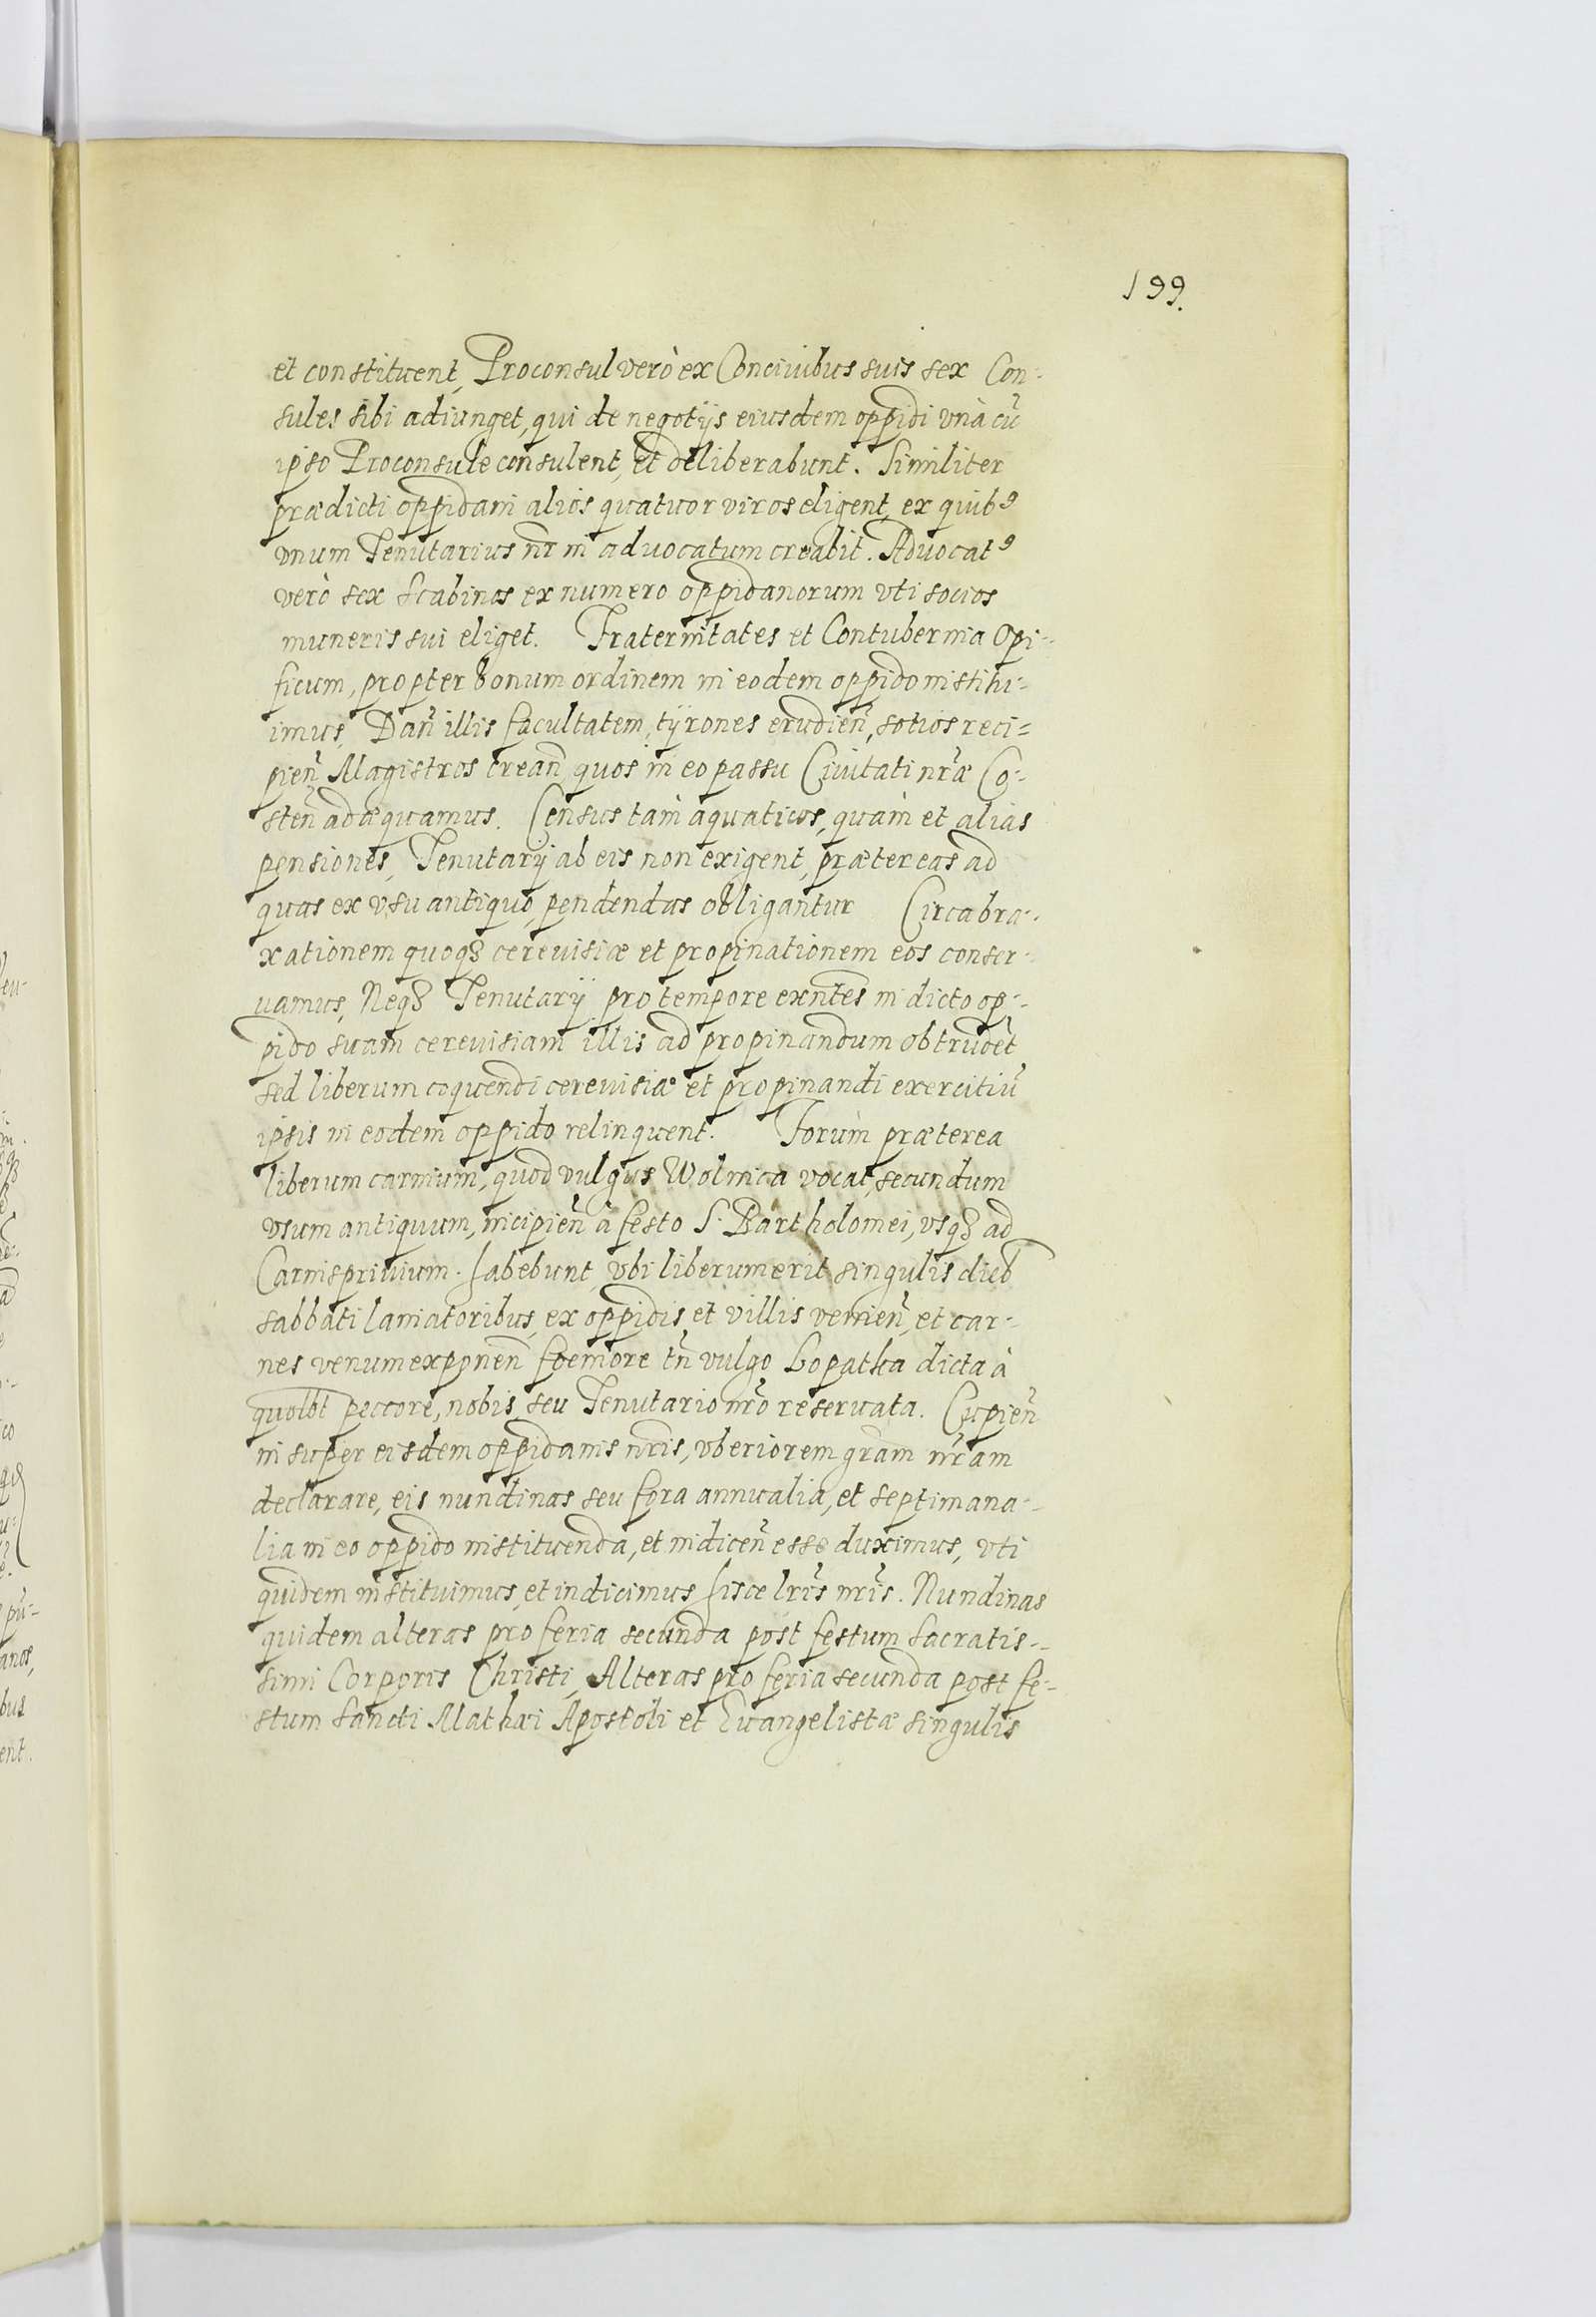 199.
et constituent, Proconsul verò ex Conciuibus suis sex Con-
sules sibi adiunget, qui de negotijs eiusdem oppidi vnà cū
ipso Proconsule consulent, et deliberabunt. Similiter
prædicti oppidani alios quatuor viros eligent, ex quibꝰ
vnum Tenutarius nr̄ in aduocatum creabit. Aduocatꝰ
verò sex Scabinos ex numero oppidanorum vti socios
muneris sui eliget. Fraternitates et Contubernia Opi-
ficum, propter bonum ordinem in eodem oppido institu-
imus, Dan̄ illis facultatem, tÿrones erudien̄, sotios reci-
pien̄ Magistros crean̄ quos in eo passu Ciuitati nr̄æ Co-
sten̄ adæquamus. Census tàm aquaticos, quàm et alias
pensiones, Tenutarij ab eis non exigent, præter eas ad
quas ex vsu antiquo, pendendas obligantur Circa bra-
xationem quoqꝫ cereuisiæ et propinationem eos conser-
uamus, Neqꝫ Tenutarij pro tempore exn̄tes in dicto op-
pido suam cereuisiam illis ad propinandum obtrudēt
sed liberum coquendi cereuisiæ et propinandi exercitiū
ipsis in eodem oppido relinquent. Forum præterea
liberum carnium, quod vulgus Wolnica vocat, secundum
vsum antiquum, incipien̄ à festo S. Bartholomei, vsqꝫ ad
Carnispriuium. habebunt, vbi liberum erit singulis dieb̄
sabbati laniatoribus, ex oppidis et villis venien̄, et car-
nes venum exponen̄ foemore tn̄ vulgo Lopatka dicta à
quolb̄t peccore, nobis, seu Tenutario nr̄o reseruata. Cupien̄
insuper eisdem oppidanis nr̄is, vberiorem gr̄am nr̄am
declarare, eis nundinas seu fora annualia, et septimana-
lia in eo oppido instituenda, et indicen̄ esse duximus, vti
quidem instituimus, et indicimus hisce lr̄is nr̄is. Nundinas
quidem alteras pro feria secunda post festum Sacratis-
simi Corporis Christi, Alteras pro feria secunda post fe-
stum Sancti Mathæi Apostoli et Euangelistæ singulis